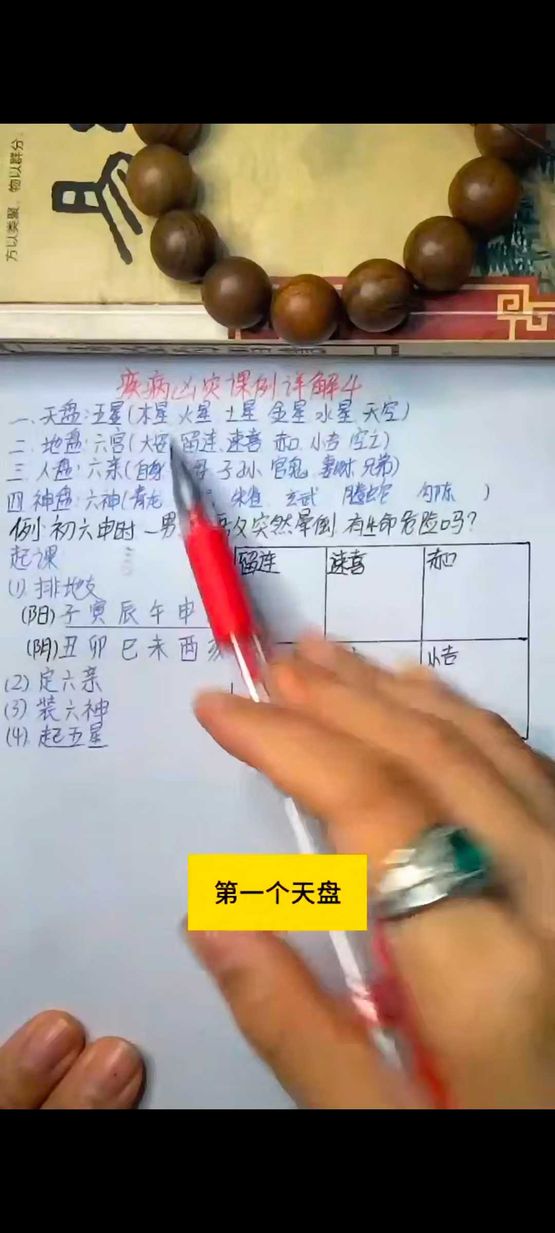 方以类聚，物以群分。
疾病凶灾课例详解4
一、天盘:五星(木星 火星 土星 金星 水星 天空)
二、地盘:六宫(大安 留连、速喜 赤口 小吉 空亡)
三、人盘:六亲(自身 母 子孙 官鬼 妻财 兄弟)
四 神盘:六神(青龙 朱雀 玄武 腾蛇 勾陈 )
例:初六申时 一男 突然晕倒 有生命危险吗?
起课
(1) 排地支
(阳) 子 寅 辰 午 申
(阴) 丑 卯 巳 未 酉 亥
(2) 定六亲
(3) 装六神
(4) 起五星
留连 速喜 赤口
小吉
第一个天盘